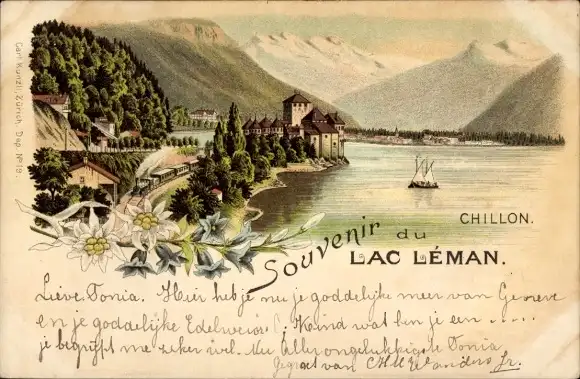 Carl Künzli, Zürich, Dep. No 19.
CHILLON.
Souvenir du
LAC LÉMAN.
Lieve Tonia. Hier heb je nu je goddelijke meer van Geneve
en je goddelijke Edelweiss! Kind wat ben je een .....
je begrijpt me zeker wel. Nu Allerongelukkigste Tonia
Gegroet van
Jr.